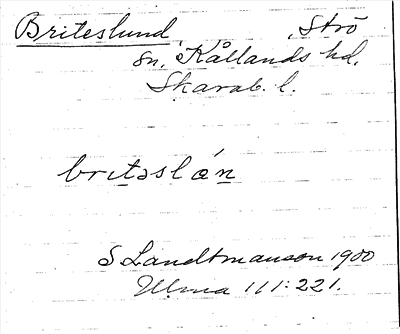 Briteslund, Strö
sn, Kållands hd,
Skarab. l.
britəslán
S Landtmanson 1900
Ulma 111:221.